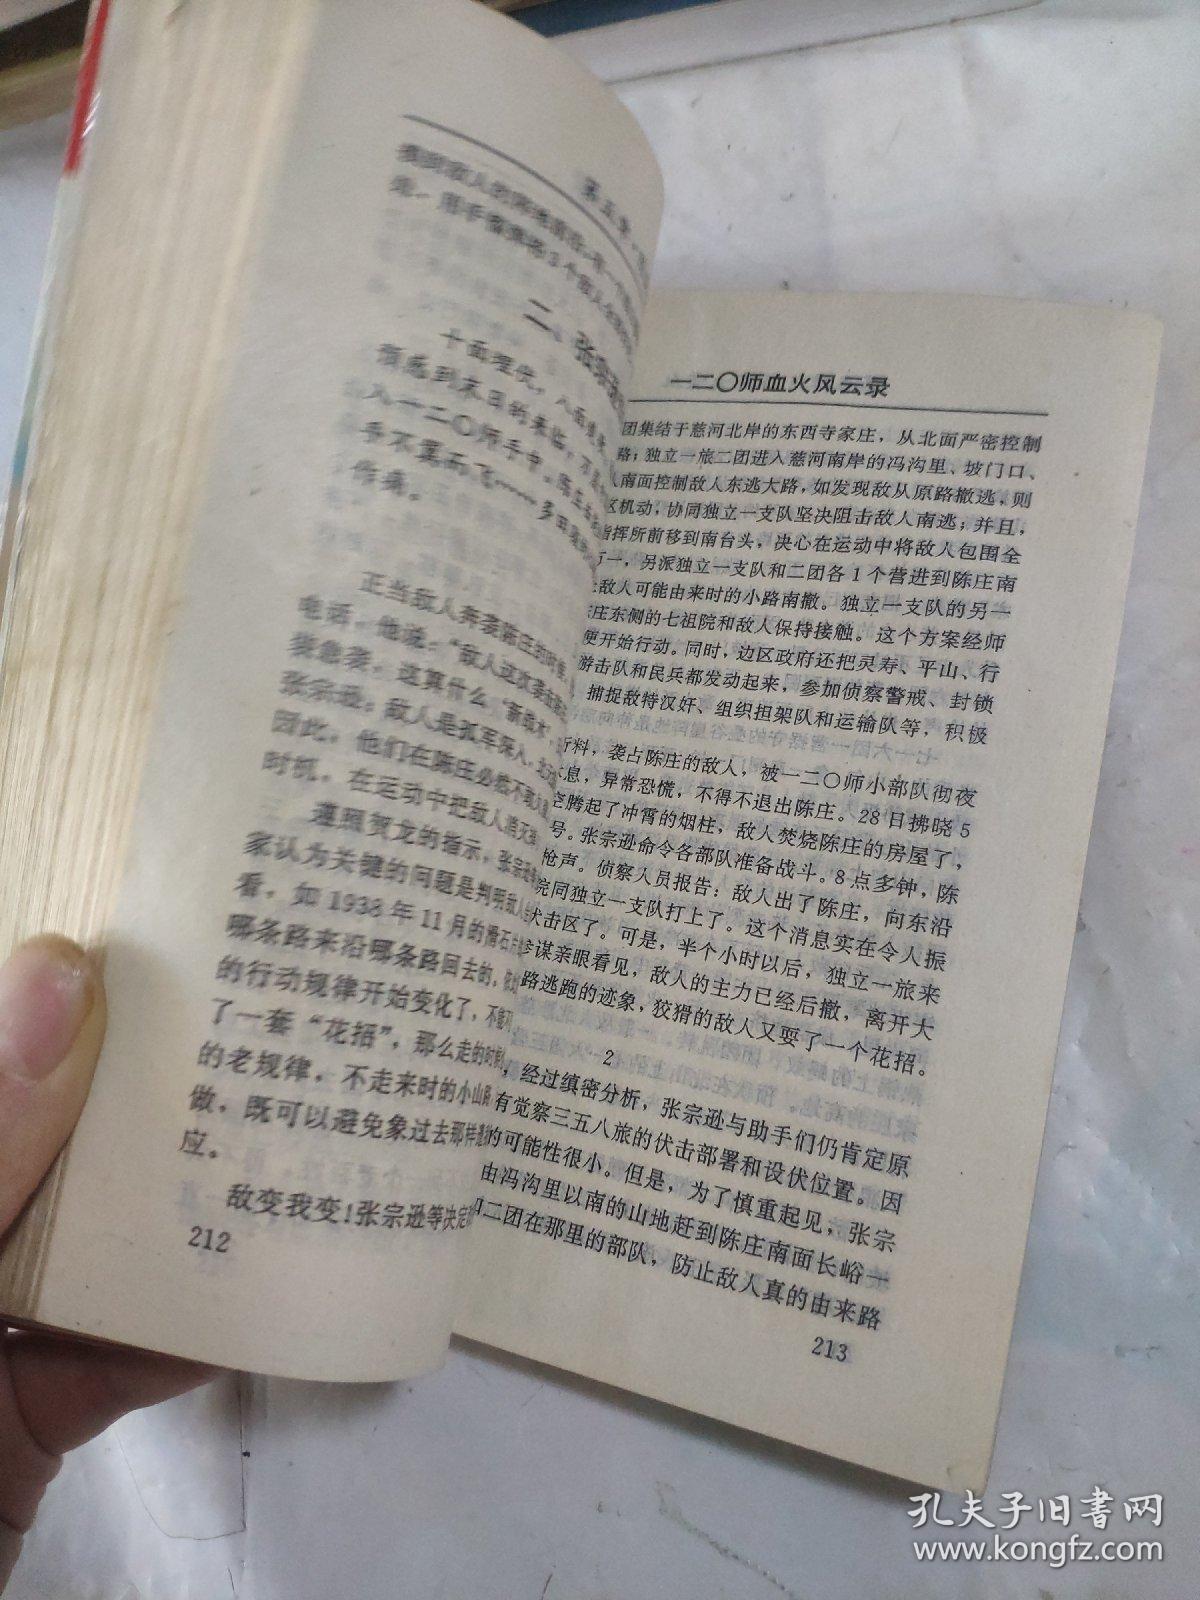 第五章
二、张宗逊
十面埋伏，八面
预感到末日的来临，不
入一二〇师手中。陈庄
手不翼而飞……多田
作痛。
正当敌人奔袭陈庄的时候，
电话，他说：“敌人这次
装急袭，这算什么‘新战术’
张宗逊：敌人是孤军深入，
因此，他们在陈庄必然不敢久
时机，在运动中把敌人消灭
遵照贺龙的指示，张宗逊
家认为关键的问题是判明敌人
看，如1938年11月的滑石片
哪条路来沿哪条路回去的，
的行动规律开始变化了，不能
了一套“花招”，那么走的时候
的老规律，不走来时的小山
做，既可以避免象过去那样
应。
敌变我变！张宗逊等决定
212
一二〇师血火风云录
团集结于慈河北岸的东西寺家庄，从北面严密控制
路；独立一旅二团进入慈河南岸的冯沟里、坡门口、
南面控制敌人东逃大路，如发现敌从原路撤逃，则
区机动，协同独立一支队坚决阻击敌人南逃；并且，
指挥所前移到南台头，决心在运动中将敌人包围全
万一，另派独立一支队和二团各1个营进到陈庄南
敌人可能由来时的小路南撤。独立一支队的另一
庄东侧的七祖院和敌人保持接触。这个方案经师
便开始行动。同时，边区政府还把灵寿、平山、行
游击队和民兵都发动起来，参加侦察警戒、封锁
捕捉敌特汉奸、组织担架队和运输队等，积极
所料，袭占陈庄的敌人，被一二〇师小部队彻夜
息，异常恐慌，不得不退出陈庄。28日拂晓5
空腾起了冲霄的烟柱，敌人焚烧陈庄的房屋了，
号。张宗逊命令各部队准备战斗。8点多钟，陈
枪声。侦察人员报告：敌人出了陈庄，向东沿
院同独立一支队打上了。这个消息实在令人振
伏击区了。可是，半个小时以后，独立一旅来
参谋亲眼看见，敌人的主力已经后撤，离开大
路逃跑的迹象，狡猾的敌人又耍了一个花招。
2
，经过缜密分析，张宗逊与助手们仍肯定原
有觉察三五八旅的伏击部署和设伏位置。因
的可能性很小。但是，为了慎重起见，张宗
由冯沟里以南的山地赶到陈庄南面长峪一
二团在那里的部队，防止敌人真的由来路
213
孔夫子旧书网
www.kongfz.com